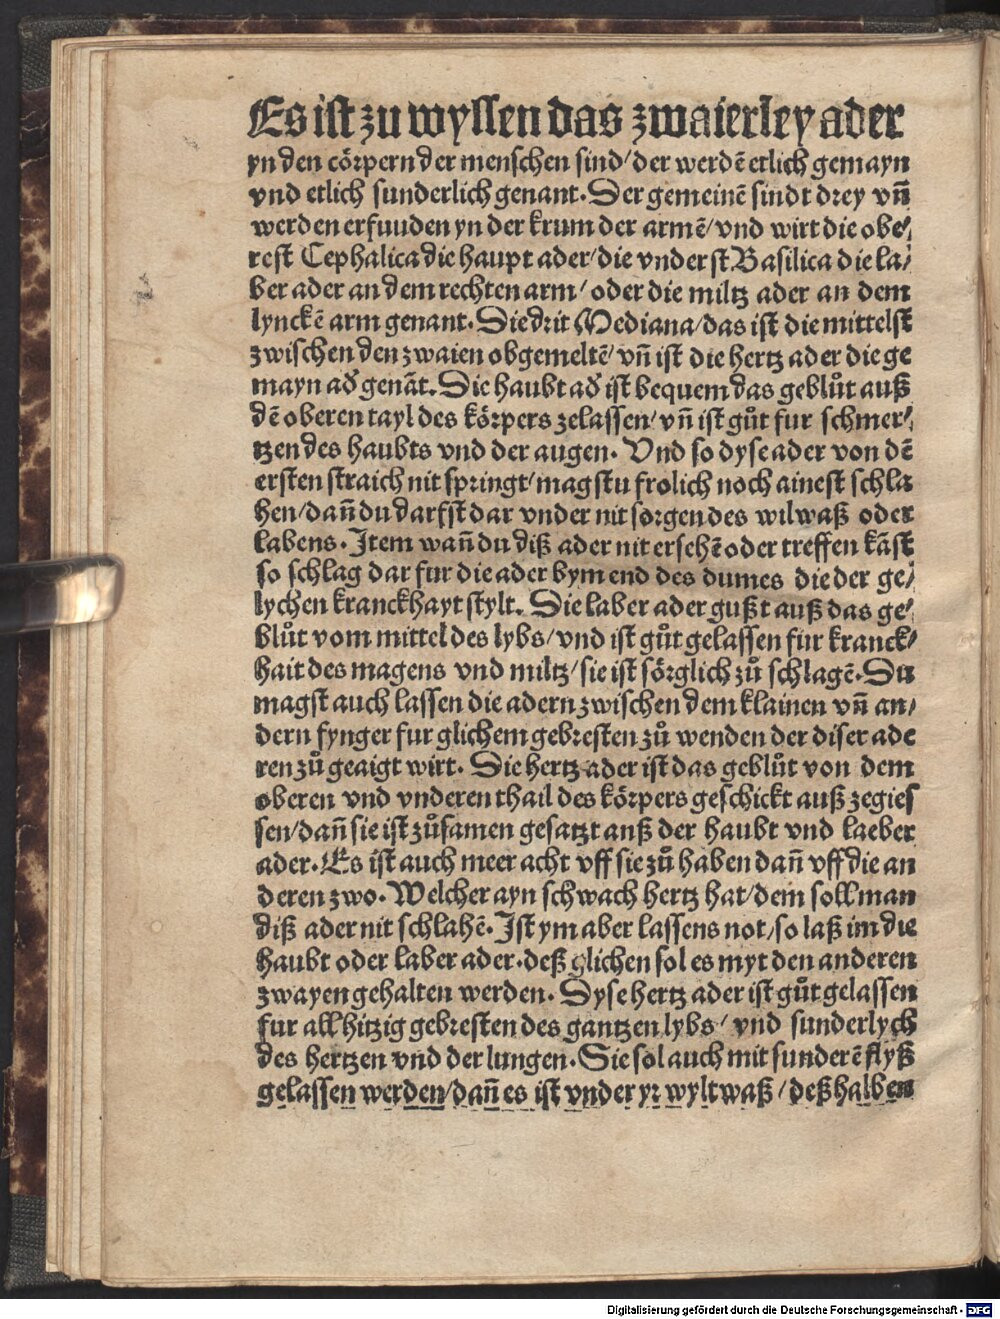 Es ist zu wyssen das zwaierley ader
yn den cörpern der menschen sind/ der werdē etlich gemayn
vnd etlich sunderlich genant. Der gemeinē sindt drey vn̄
werden erfuuden yn der krum der armē/ vnd wirt die obe⸗
rest Cephalica die haupt ader/ die vnderst Basilica die la⸗
ber ader an dem rechten arm/ oder die miltz ader an dem
lynckē arm genant. Die drit Mediana/ das ist die mittelst
zwischen den zwaien obgemeltē/ vn̄ ist die hertz ader die ge
mayn ad̕ genāt. Die haubt ad̕ ist bequem das geblůt auß
dē oberen tayl des körpers zelassen/ vn̄ ist gůt fur schmer⸗
tzen des haubts vnd der augen. Vnd so dyse ader von dē
ersten straich nit springt/ magstu frolich noch ainest schla
hen/ dan̄ du darfst dar vnder nit sorgen des wilwaß oder
labens. Item wan̄ du diß ader nit ersehē oder treffen kāst
so schlag dar fur die ader bym end des dumes die der ge⸗
lychen kranckhayt stylt. Die laber ader gußt auß das ge⸗
blůt vom mittel des lybs/ vnd ist gůt gelassen fur kranck⸗
hait des magens vnd miltz/ sie ist sörglich zů schlagē. Du
magst auch lassen die adern zwischen dem klainen vn̄ an⸗
dern fynger fur glichem gebresten zů wenden der diser ade
ren zů geaigt wirt. Die hertz ader ist das geblůt von dem
oberen vnd vnderen thail des körpers geschickt auß zegies
sen/ dan̄ sie ist zůsamen gesatzt anß der haubt vnd laeber
ader. Es ist auch meer acht vff sie zů haben dan̄ vff die an
deren zwo. Welcher ayn schwach hertz hat/ dem soll man
diß ader nit schlahē. Ist ym aber lassens not/ so laß im die
haubt oder laber ader. deß glichen sol es myt den anderen
zwayen gehalten werden. Dyse hertz ader ist gůt gelassen
fur all hitzig gebresten des gantzen lybs/ vnd sunderlych
des hertzen vnd der lungen. Sie sol auch mit sunderē flyß
gelassen werden/ dan̄ es ist vnder yr wyltwaß/ deßhalben
Digitalisierung gefördert durch die Deutsche Forschungsgemeinschaft - DFG